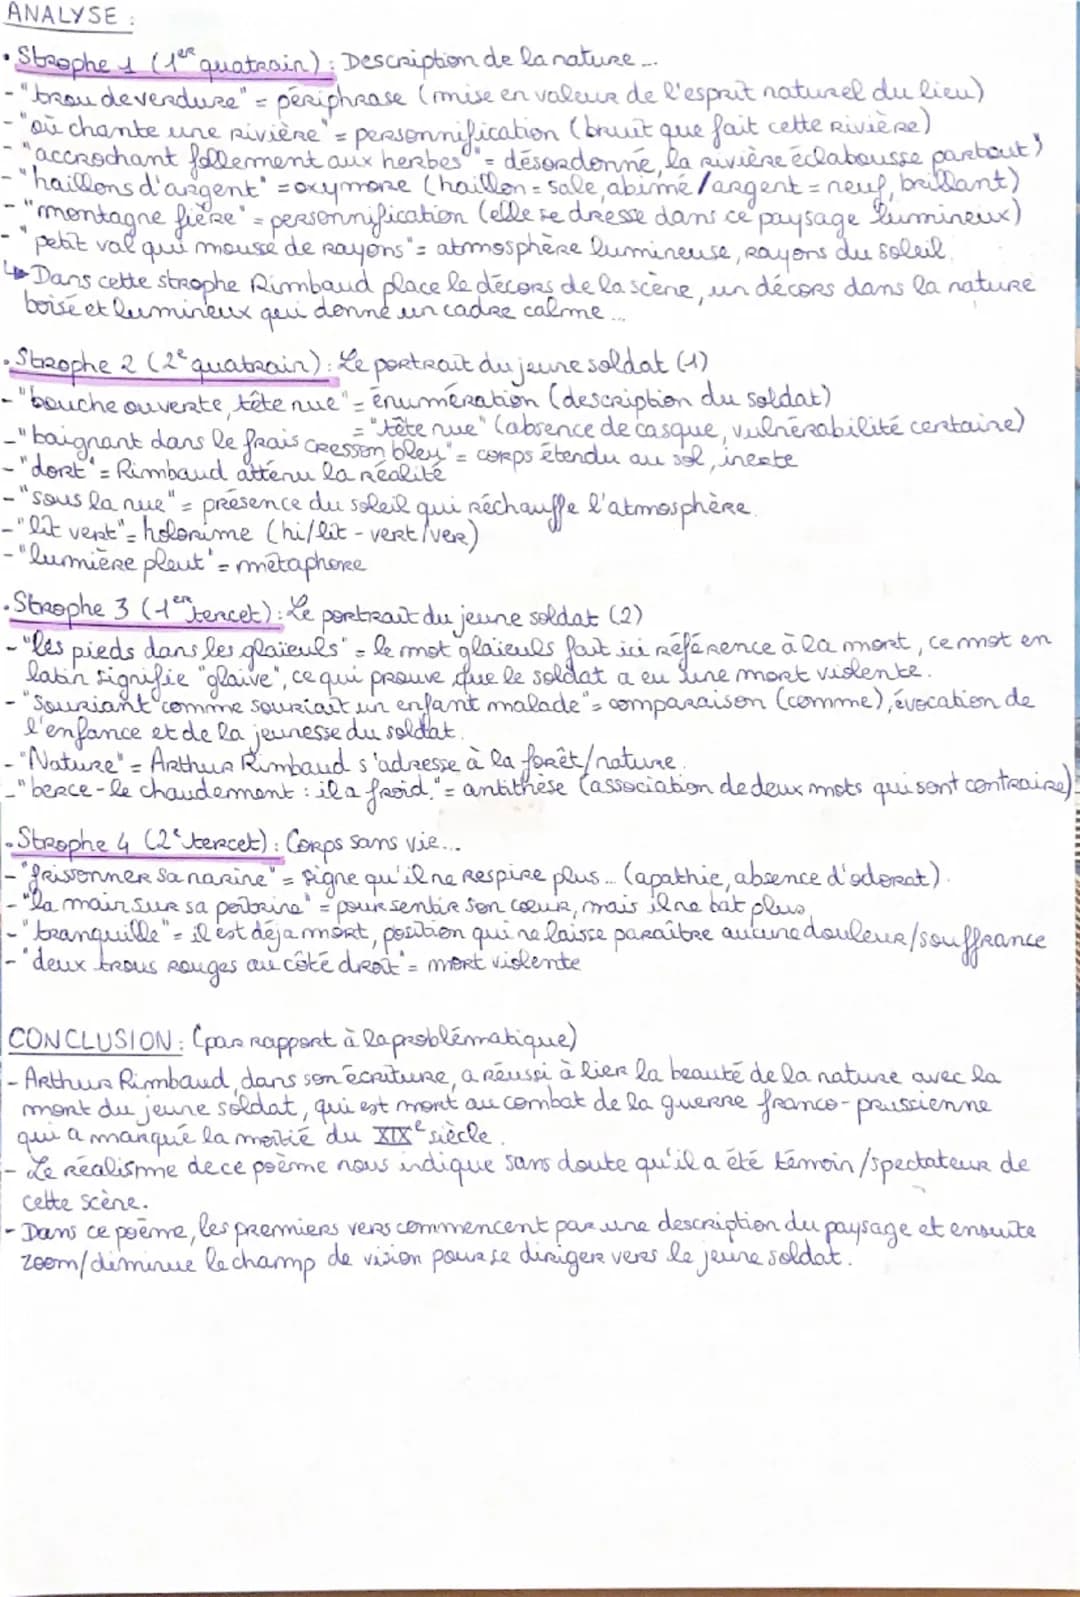 ANALYSE :
• Strophe 1 (1er quatrain) : Description de la nature ...
- "trou de verdure" = périphrase (mise en valeur de l'esprit naturel du lieu)
- "où chante une rivière" = personnification (bruit que fait cette rivière)
- "accrochant follement aux herbes" = désordonné, la rivière éclabousse partout)
- "haillons d'argent" = oxymore (haillon = sale, abimé / argent = neuf, brillant)
- "montagne fière" = personnification (elle se dresse dans ce paysage lumineux)
- "petit val qui mousse de rayons" = atmosphère lumineuse, rayons du soleil.
↳ Dans cette strophe Rimbaud place le décors de la scène, un décors dans la nature
boisé et lumineux qui donne un cadre calme ...
• Strophe 2 (2e quatrain) : Le portrait du jeune soldat (1)
- "bouche ouverte, tête nue" = énumération (description du soldat)
= "tête nue" (absence de casque, vulnérabilité certaine)
- "baignant dans le frais cresson bleu" = corps étendu au sol, inerte
- "dort" = Rimbaud atténu la réalité
- "sous la nue" = présence du soleil qui réchauffe l'atmosphère.
- "lit vert" = holorime (hi/lit - vert/ver)
- "lumière pleut" = métaphore
• Strophe 3 (1er tercet) : Le portrait du jeune soldat (2)
- "les pieds dans les glaïeuls" = le mot glaïeuls fait ici référence à la mort, ce mot en
latin signifie "glaive", ce qui prouve que le soldat a eu une mort violente.
- "Souriant comme souriait un enfant malade" = comparaison (comme), évocation de
l'enfance et de la jeunesse du soldat.
- "Nature" = Arthur Rimbaud s'adresse à la forêt/nature.
- "berce-le chaudement : il a froid." = antithèse (association de deux mots qui sont contraire).
• Strophe 4 (2e tercet) : Corps sans vie...
- "frissonner sa narine" = signe qu'il ne respire plus ... (apathie, absence d'odorat).
- "la main sur sa poitrine" = pour sentir son cœur, mais il ne bat plus.
- "tranquille" = il est déja mort, position qui ne laisse paraître aucune douleur/souffrance
- "deux trous rouges au côté droit" = mort violente
CONCLUSION : (par rapport à la problématique)
- Arthur Rimbaud, dans son écriture, a réussi à lier la beauté de la nature avec la
mort du jeune soldat, qui est mort au combat de la guerre franco-prussienne
qui a marqué la moitié du XIXe siècle.
- Le réalisme de ce poème nous indique sans doute qu'il a été témoin/spectateur de
cette scène.
- Dans ce poème, les premiers vers commencent par une description du paysage et ensuite
zoom/diminue le champ de vision pour se diriger vers le jeune soldat.